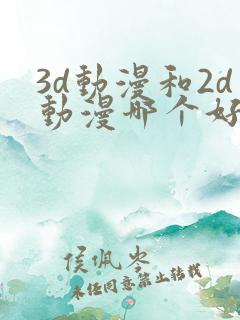 3d動漫和2d
動漫哪个好
侯佩岑
未任同意禁止转载